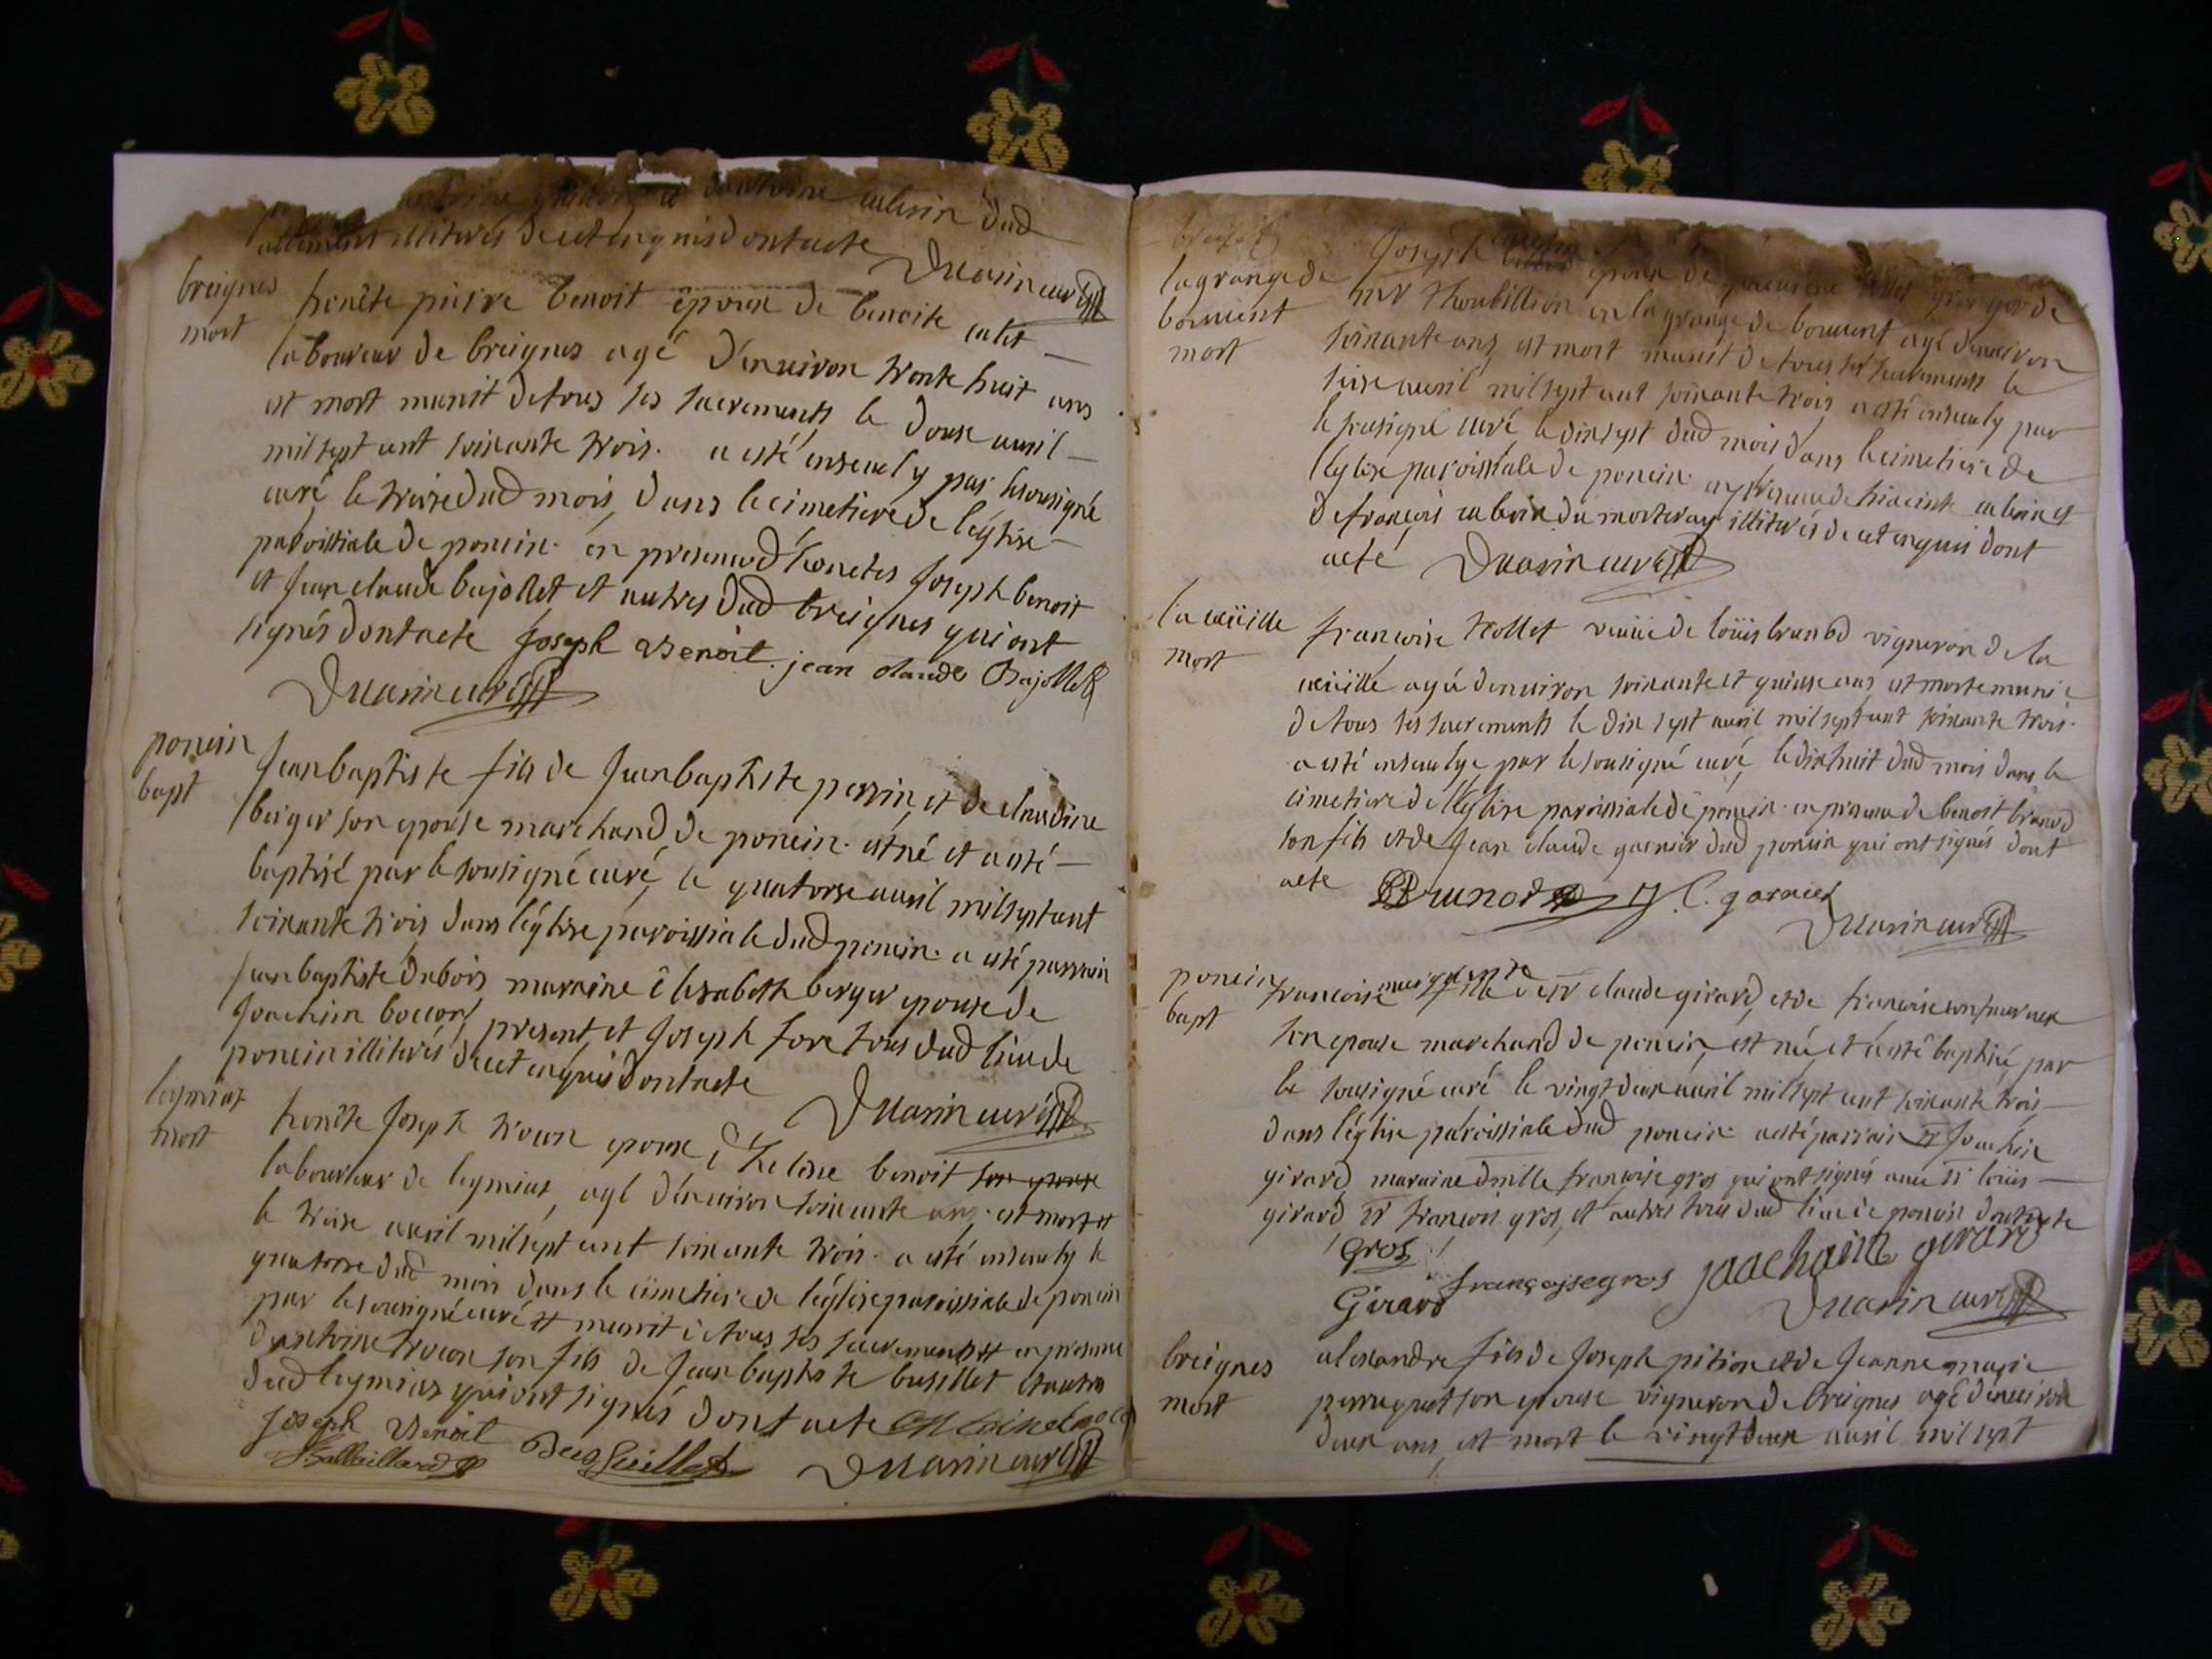 antoine dud
illiterés de cet enquis dont acte
Duasin curé
breignes
mort
honête pierre benoit époux de benoite
laboureur de breignes agé d'enuiron trente huit ans
est mort munit de tous ses sacrements le douse auril
mil sept cent soixante trois. a esté enseuely par le sousigné
curé le treise dud mois dans le cimetiere de léglise
paroissiale de poncin. en presence d'honetes Joseph benoit
et Jean claude bajollet et autres dud breignes qui ont
signés dont acte Joseph Benoit jean claude Bajollet
Duasin curé
poncin
bapt
Jean baptiste fils de Jean baptiste perrin et de claudine
berger son epouse marchand de poncin. est né et a esté
baptisé par le sousigné curé le quatorse auril mil sept cent
soixante trois dans léglise paroissiale dud poncin. a esté parrain
Jean baptiste dubois maraine élisabeth berger epouse de
Joachim boccon present et Joseph fore tous dud lieu de
poncin illiterés de cet enquis dont acte
Duasin curé
leymiat
mort
honête Joseph trocon epoux d' benoit son epouse
laboureur de leymiat, agé d'enuiron soixante ans est mort et
le treise auril mil sept cent soixante trois. a esté enseuely le
quatorse dud mois dans le cimetiere de léglise paroissiale de poncin
par le sousigné curé et munit de tous ses sacrements et en presence
d'antoine trocon son fils de Jean baptiste busillet et autres
dud leymiat qui ont signés dont acte
Joseph Benoit
Duasin curé
lagrange de
bouuent
mort
Joseph époux de granger de
mr Thoubillion en la grange de bouuent agé d'enuiron
soixante ans est mort munit de tous ses sacrements le
seise auril mil sept cent soixante trois a esté enseuely par
le sousigné curé le dix sept dud mois dans le cimetiere de
l'eglise paroissiale de poncin. en presence de hiacinte et
de françois du morteray illiterés de cet enquis dont
acte Duasin curé
la cuëille
mort
françoise trollet veuüe de loüis brunod vigneron de la
cuëille agée d'enuiron soixante et quinse ans est morte munie
de tous ses sacrements le dix sept auril mil sept cent soixante trois.
a esté enseuelye par le sousigné curé le dix huit dud mois dans le
cimetiere de l'eglise paroissiale de poncin. en presence de benoit brunod
son fils et de Jean claude garnier dud poncin qui ont signés dont
acte Brunod J. C. garnier
Duasin curé
poncin
bapt
francoise fille de sr claude girard, et de françoise
son epouse marchand de poncin est née et a esté baptisée par
le sousigné curé le vingt deux auril mil sept cent soixante trois
dans léglise paroissiale dud poncin. a esté parrain sr Joachin
girard maraine dmlle françoise gros qui ont signés auec sr loüis
girard sr françois gros, et autres tous dud lieu de poncin dont acte
Gros
françoise gros joachain girard
Girard
Duasin curé
breignes
mort
alexandre fils de Joseph pition et de Jeanne marie
perruquet son epouse vigneron de breignes agé d'enuiron
deux ans est mort le vingt deux auril mil sept